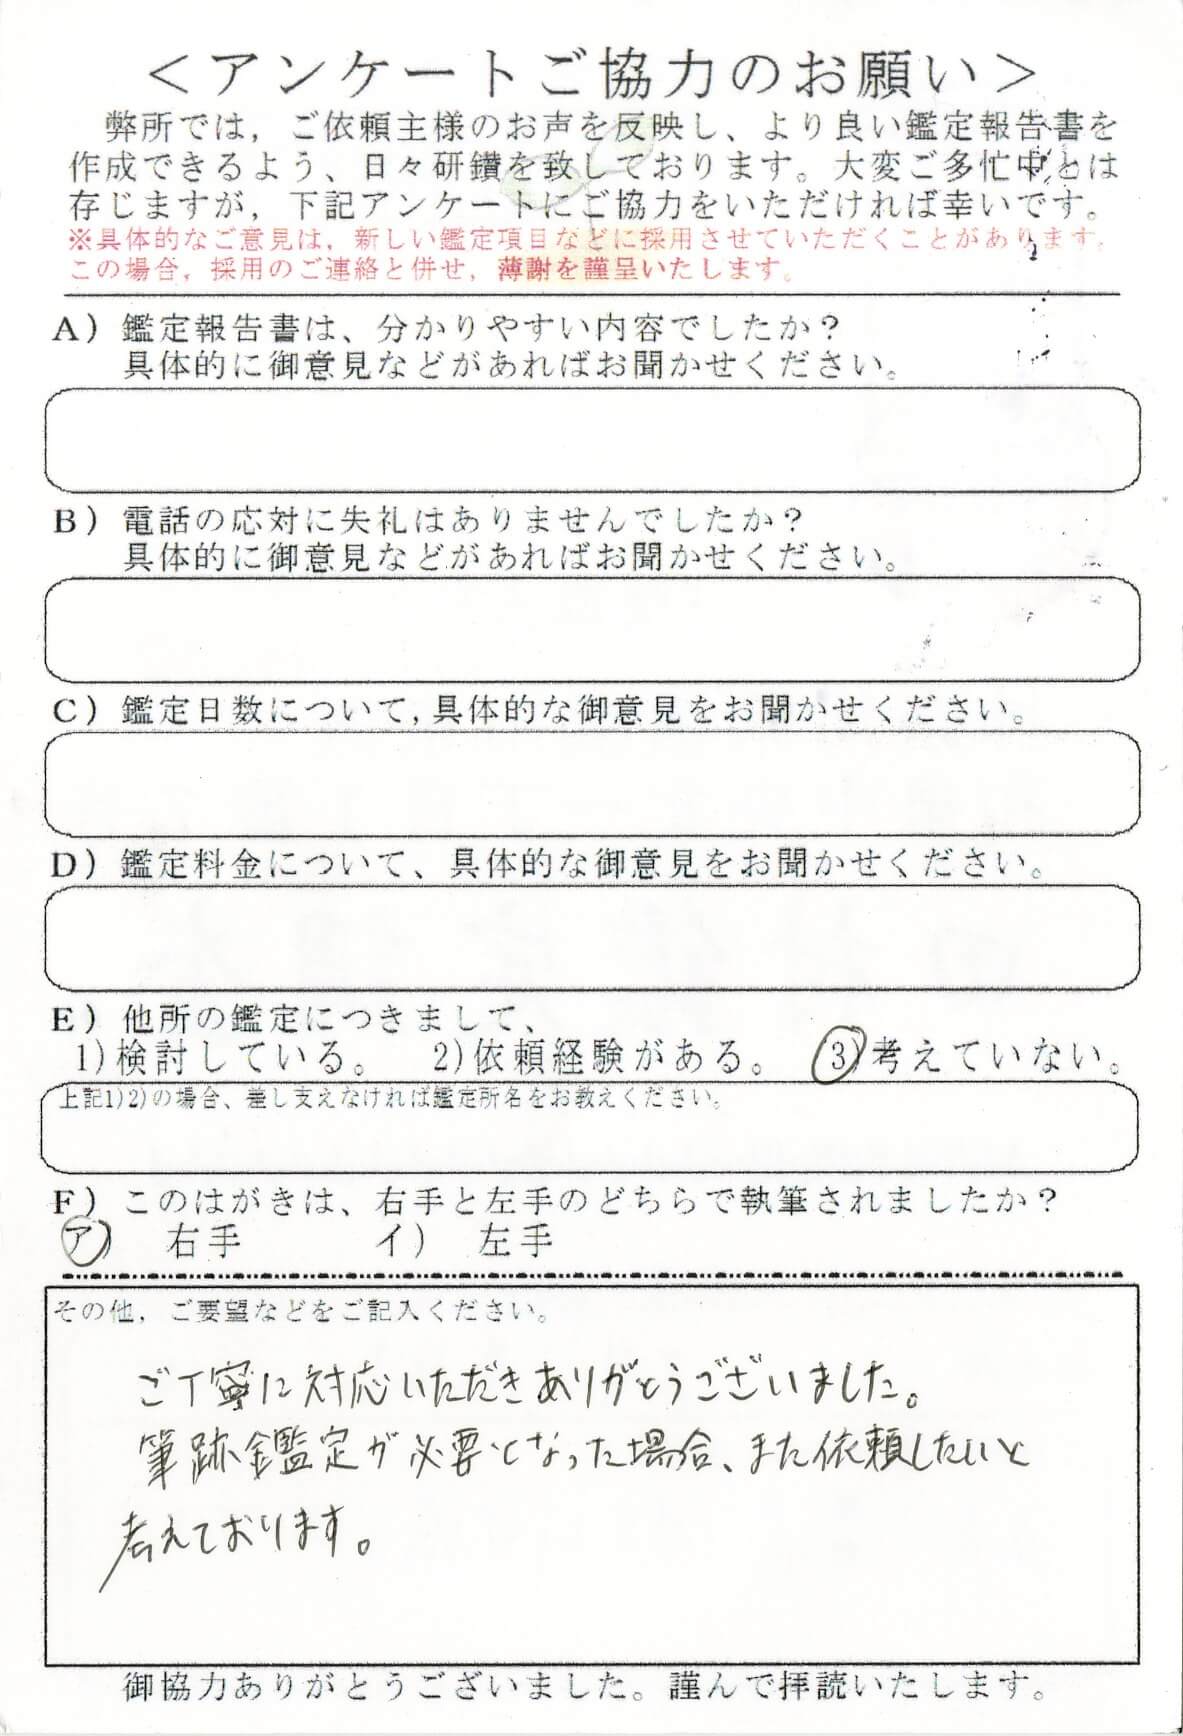 ＜アンケートご協力のお願い＞
弊所では，ご依頼主様のお声を反映し、より良い鑑定報告書を
作成できるよう、日々研鑽を致しております。大変ご多忙中とは
存じますが，下記アンケートにご協力をいただければ幸いです。
※具体的なご意見は，新しい鑑定項目などに採用させていただくことがあります。
この場合，採用のご連絡と併せ，薄謝を謹呈いたします。
A）鑑定報告書は、分かりやすい内容でしたか？
具体的に御意見などがあればお聞かせください。
B）電話の応対に失礼はありませんでしたか？
具体的に御意見などがあればお聞かせください。
C）鑑定日数について,具体的な御意見をお聞かせください。
D）鑑定料金について、具体的な御意見をお聞かせください。
E）他所の鑑定につきまして、
1)検討している。 2)依頼経験がある。 3)考えていない。
上記1)2)の場合、差し支えなければ鑑定所名をお教えください。
F）このはがきは、右手と左手のどちらで執筆されましたか？
ア） 右手 イ） 左手
その他，ご要望などをご記入ください。
ご丁寧に対応いただきありがとうございました。
筆跡鑑定が必要となった場合、また依頼したいと
考えております。
御協力ありがとうございました。謹んで拝読いたします。